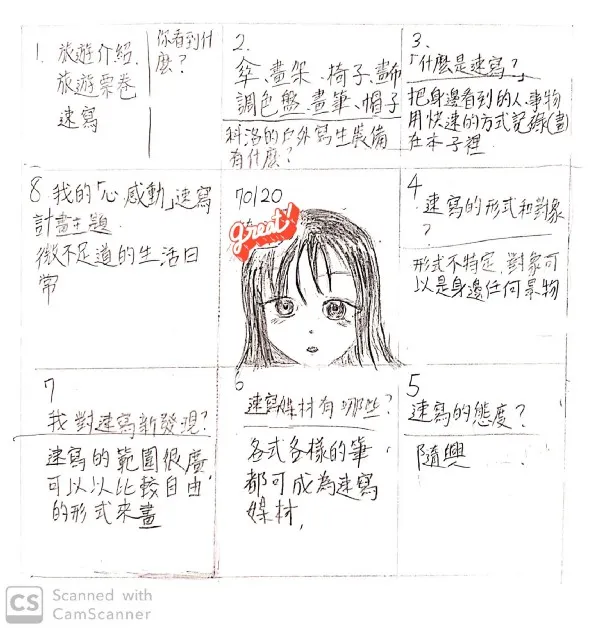 1. 旅遊介紹、
旅遊票卷
速寫
你看到什
麼?
2.
傘、畫架、椅子、畫布
調色盤、畫筆、帽子
科洛的戶外寫生裝備
有什麼?
3.
「什麼是速寫?」
把身邊看到的人、事物
用快速的方式記錄(畫)
在本子裡.
8 我的「心感動」速寫
計畫主題.
微不足道的生活日
常
70/20
great!
4
速寫的形式和對象
?
形式不特定,對象可
以是身邊任何景物
7
我對速寫新發現?
速寫的範圍很廣,
可以以比較自由
的形式來畫
6
速寫媒材有哪些?
各式各樣的筆
都可成為速寫
媒材,
5
速寫的態度?
隨興
CS Scanned with
CamScanner